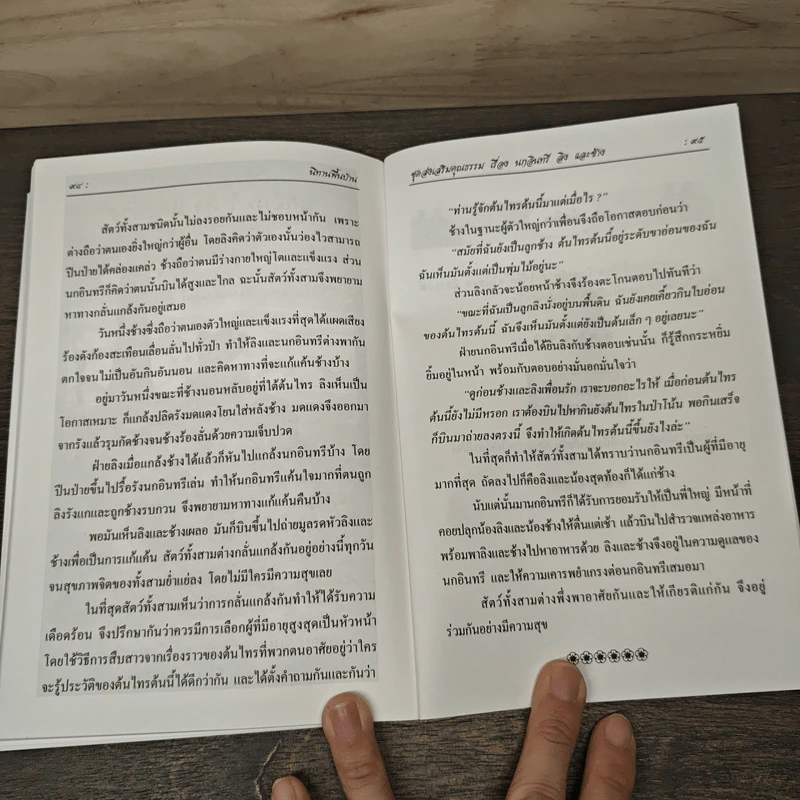 ๙๔ : นิทานพื้นบ้าน
สัตว์ทั้งสามชนิดนั้นไม่ลงรอยกันและไม่ชอบหน้ากัน เพราะ
ต่างถือว่าตนเองยิ่งใหญ่กว่าผู้อื่น โดยลิงคิดว่าตัวเองนั้นว่องไวสามารถ
ปีนป่ายได้คล่องแคล่ว ช้างถือว่าตนมีร่างกายใหญ่โตและแข็งแรง ส่วน
นกอินทรีก็คิดว่าตนนั้นบินได้สูงและไกล ฉะนั้นสัตว์ทั้งสามจึงพยายาม
หาทางกลั่นแกล้งกันอยู่เสมอ
วันหนึ่งช้างซึ่งถือว่าตนเองตัวใหญ่และแข็งแรงที่สุดได้แผดเสียง
ร้องดังก้องสะเทือนเลื่อนลั่นไปทั่วป่า ทำให้ลิงและนกอินทรีต่างพากัน
ตกใจจนไม่เป็นอันกินอันนอน และคิดหาทางที่จะแก้แค้นช้างบ้าง
อยู่มาวันหนึ่งขณะที่ช้างนอนหลับอยู่ที่ใต้ต้นไทร ลิงเห็นเป็น
โอกาสเหมาะ ก็แกล้งปลิดรังมดแดงโยนใส่หลังช้าง มดแดงจึงออกมา
จากรังแล้วรุมกัดช้างจนช้างร้องลั่นด้วยความเจ็บปวด
ฝ่ายลิงเมื่อแกล้งช้างได้แล้วก็หันไปแกล้งนกอินทรีบ้าง โดย
ปีนป่ายขึ้นไปรื้อรังนกอินทรีเล่น ทำให้นกอินทรีแค้นใจมากที่ตนถูก
ลิงรังแกและถูกช้างรบกวน จึงพยายามหาทางแก้แค้นคืนบ้าง
พอมันเห็นลิงและช้างเผลอ มันก็บินขึ้นไปถ่ายมูลรดหัวลิงและ
ช้างเพื่อเป็นการแก้แค้น สัตว์ทั้งสามต่างกลั่นแกล้งกันอยู่อย่างนี้ทุกวัน
จนสุขภาพจิตของทั้งสามย่ำแย่ลง โดยไม่มีใครมีความสุขเลย
ในที่สุดสัตว์ทั้งสามเห็นว่าการกลั่นแกล้งกันทำให้ได้รับความ
เดือดร้อน จึงปรึกษากันว่าควรมีการเลือกผู้ที่มีอายุสูงสุดเป็นหัวหน้า
โดยใช้วิธีการสืบสาวจากเรื่องราวของต้นไทรที่พวกตนอาศัยอยู่ว่าใคร
จะรู้ประวัติของต้นไทรต้นนี้ได้ดีกว่ากัน และได้ตั้งคำถามกันและกันว่า
ชุดส่งเสริมคุณธรรม เรื่อง นกอินทรี ลิง และช้าง : ๙๕
"ท่านรู้จักต้นไทรต้นนี้มาแต่เมื่อไร ?"
ช้างในฐานะผู้ตัวใหญ่กว่าเพื่อนจึงถือโอกาสตอบก่อนว่า
"สมัยที่ฉันยังเป็นลูกช้าง ต้นไทรต้นนี้อยู่ระดับขาอ่อนของฉัน
ฉันเห็นมันตั้งแต่เป็นพุ่มไม้อยู่นะ"
ส่วนลิงกลัวจะน้อยหน้าช้างจึงร้องตะโกนตอบไปทันทีว่า
"ขณะที่ฉันเป็นลูกลิงนั่งอยู่บนพื้นดิน ฉันยังเคยเคี้ยวกินใบอ่อน
ของต้นไทรต้นนี้ ฉันจึงเห็นมันตั้งแต่ยังเป็นต้นเล็ก ๆ อยู่เลยนะ"
ฝ่ายนกอินทรีเมื่อได้ยินลิงกับช้างตอบเช่นนั้น ก็รู้สึกกระหยิ่ม
ยิ้มอยู่ในหน้า พร้อมกับตอบอย่างมั่นอกมั่นใจว่า
"ดูก่อนช้างและลิงเพื่อนรัก เราจะบอกอะไรให้ เมื่อก่อนต้นไทร
ต้นนี้ยังไม่มีหรอก เราต้องบินไปหากินยังต้นไทรในป่าโน้น พอกินเสร็จ
ก็บินมาถ่ายลงตรงนี้ จึงทำให้เกิดต้นไทรต้นนี้ขึ้นยังไงล่ะ"
ในที่สุดก็ทำให้สัตว์ทั้งสามได้ทราบว่านกอินทรีเป็นผู้ที่มีอายุ
มากที่สุด ถัดลงไปก็คือลิงและน้องสุดท้องก็ได้แก่ช้าง
นับแต่นั้นมานกอินทรีก็ได้รับการยอมรับให้เป็นพี่ใหญ่ มีหน้าที่
คอยปลุกน้องลิงและน้องช้างให้ตื่นแต่เช้า แล้วบินไปสำรวจแหล่งอาหาร
พร้อมพาลิงและช้างไปหาอาหารด้วย ลิงและช้างจึงอยู่ในความดูแลของ
นกอินทรี และให้ความเคารพยำเกรงต่อนกอินทรีเสมอมา
สัตว์ทั้งสามต่างพึ่งพาอาศัยกันและให้เกียรติแก่กัน จึงอยู่
ร่วมกันอย่างมีความสุข